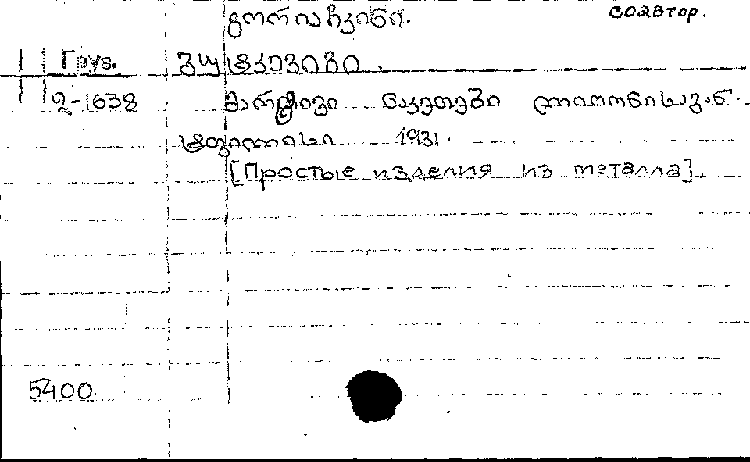 გორიაჩკინი. соавтор.
Груз.
2-1638 მარტივი ნაკეთები ლითონისაგან.
ტფილისი 1931.
[Простые изделия из металла].
5400